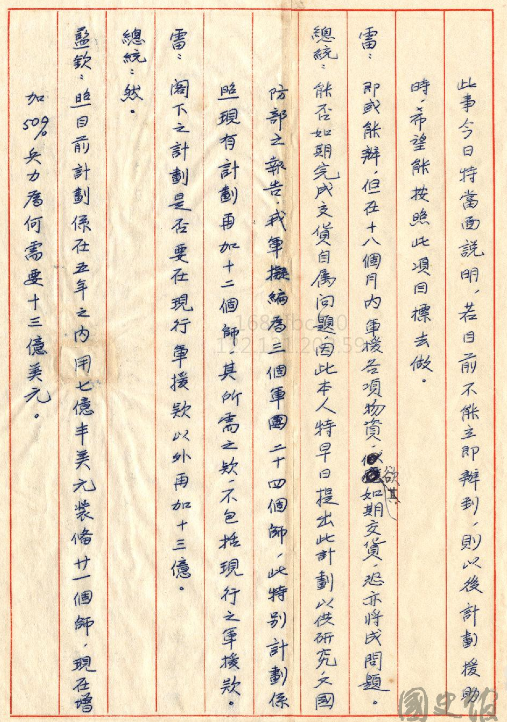 此事今日特當面説明，若目前不能立即辦到，則以後計劃援助
時，希望能按照此項目標去做。
雷：即或能辦，但在十八個月內軍援各項物資，欲其如期交貨，恐亦將成問題。
總統：能否如期完成交貨自属问題因此本人特早日提出此計劃以供研究，又國
防部之報告，我軍擬編爲三個軍團二十四個師，此特别計劃係
照現有計劃再加十二個師，其所需之欵，不包括現行之軍援欵。
雷：閣下之計劃是否要在現行軍援欵以外再加十三億。
總統：然。
藍欽：照目前計劃係在五年之内用七億半美元裝備廿一個師，現在增
加50%兵力爲何需要十三億美元。
國史館